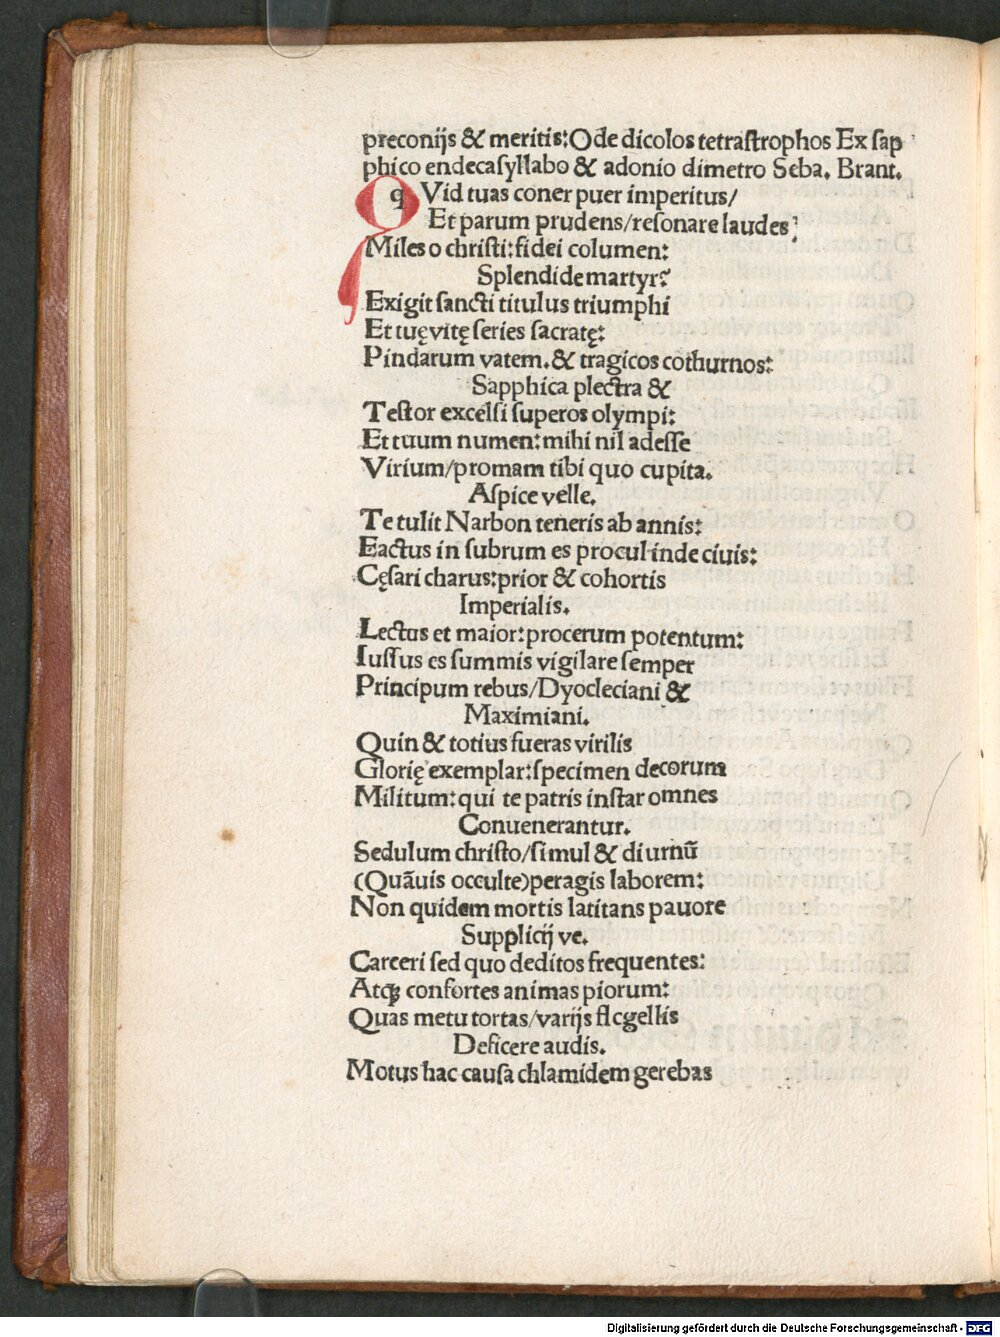 preconijs & meritis: Ode dicolos tetrastrophos Ex sap
phico endecasyllabo & adonio dimetro Seba. Brant.
qVid tuas coner puer imperitus/
Et parum prudens/resonare laudes?
Miles o christi: fidei columen:
Splendide martyr?
Exigit sancti titulus triumphi
Et tuę vitę series sacratę:
Pindarum vatem. & tragicos cothurnos:
Sapphica plectra &
Testor excelsi superos olympi:
Et tuum numen: mihi nil adesse
Virium/promam tibi quo cupita.
Aspice velle.
Te tulit Narbon teneris ab annis:
Eactus in subrum es procul inde ciuis:
Cęsari charus: prior & cohortis
Imperialis.
Lectus et maior: procerum potentum:
Iussus es summis vigilare semper
Principum rebus/Dyocleciani &
Maximiani.
Quin & totius fueras virilis
Glorię exemplar: specimen decorum
Militum: qui te patris instar omnes
Conuenerantur.
Sedulum christo/simul & diurnū
(Quāuis occulte) peragis laborem:
Non quidem mortis latitans pauore
Supplicij ve.
Carceri sed quo deditos frequentes:
Atqꝫ confortes animas piorum:
Quas metu tortas/varijs flcgellis
Deficere audis.
Motus hac causa chlamidem gerebas
Digitalisierung gefördert durch die Deutsche Forschungsgemeinschaft - DFG